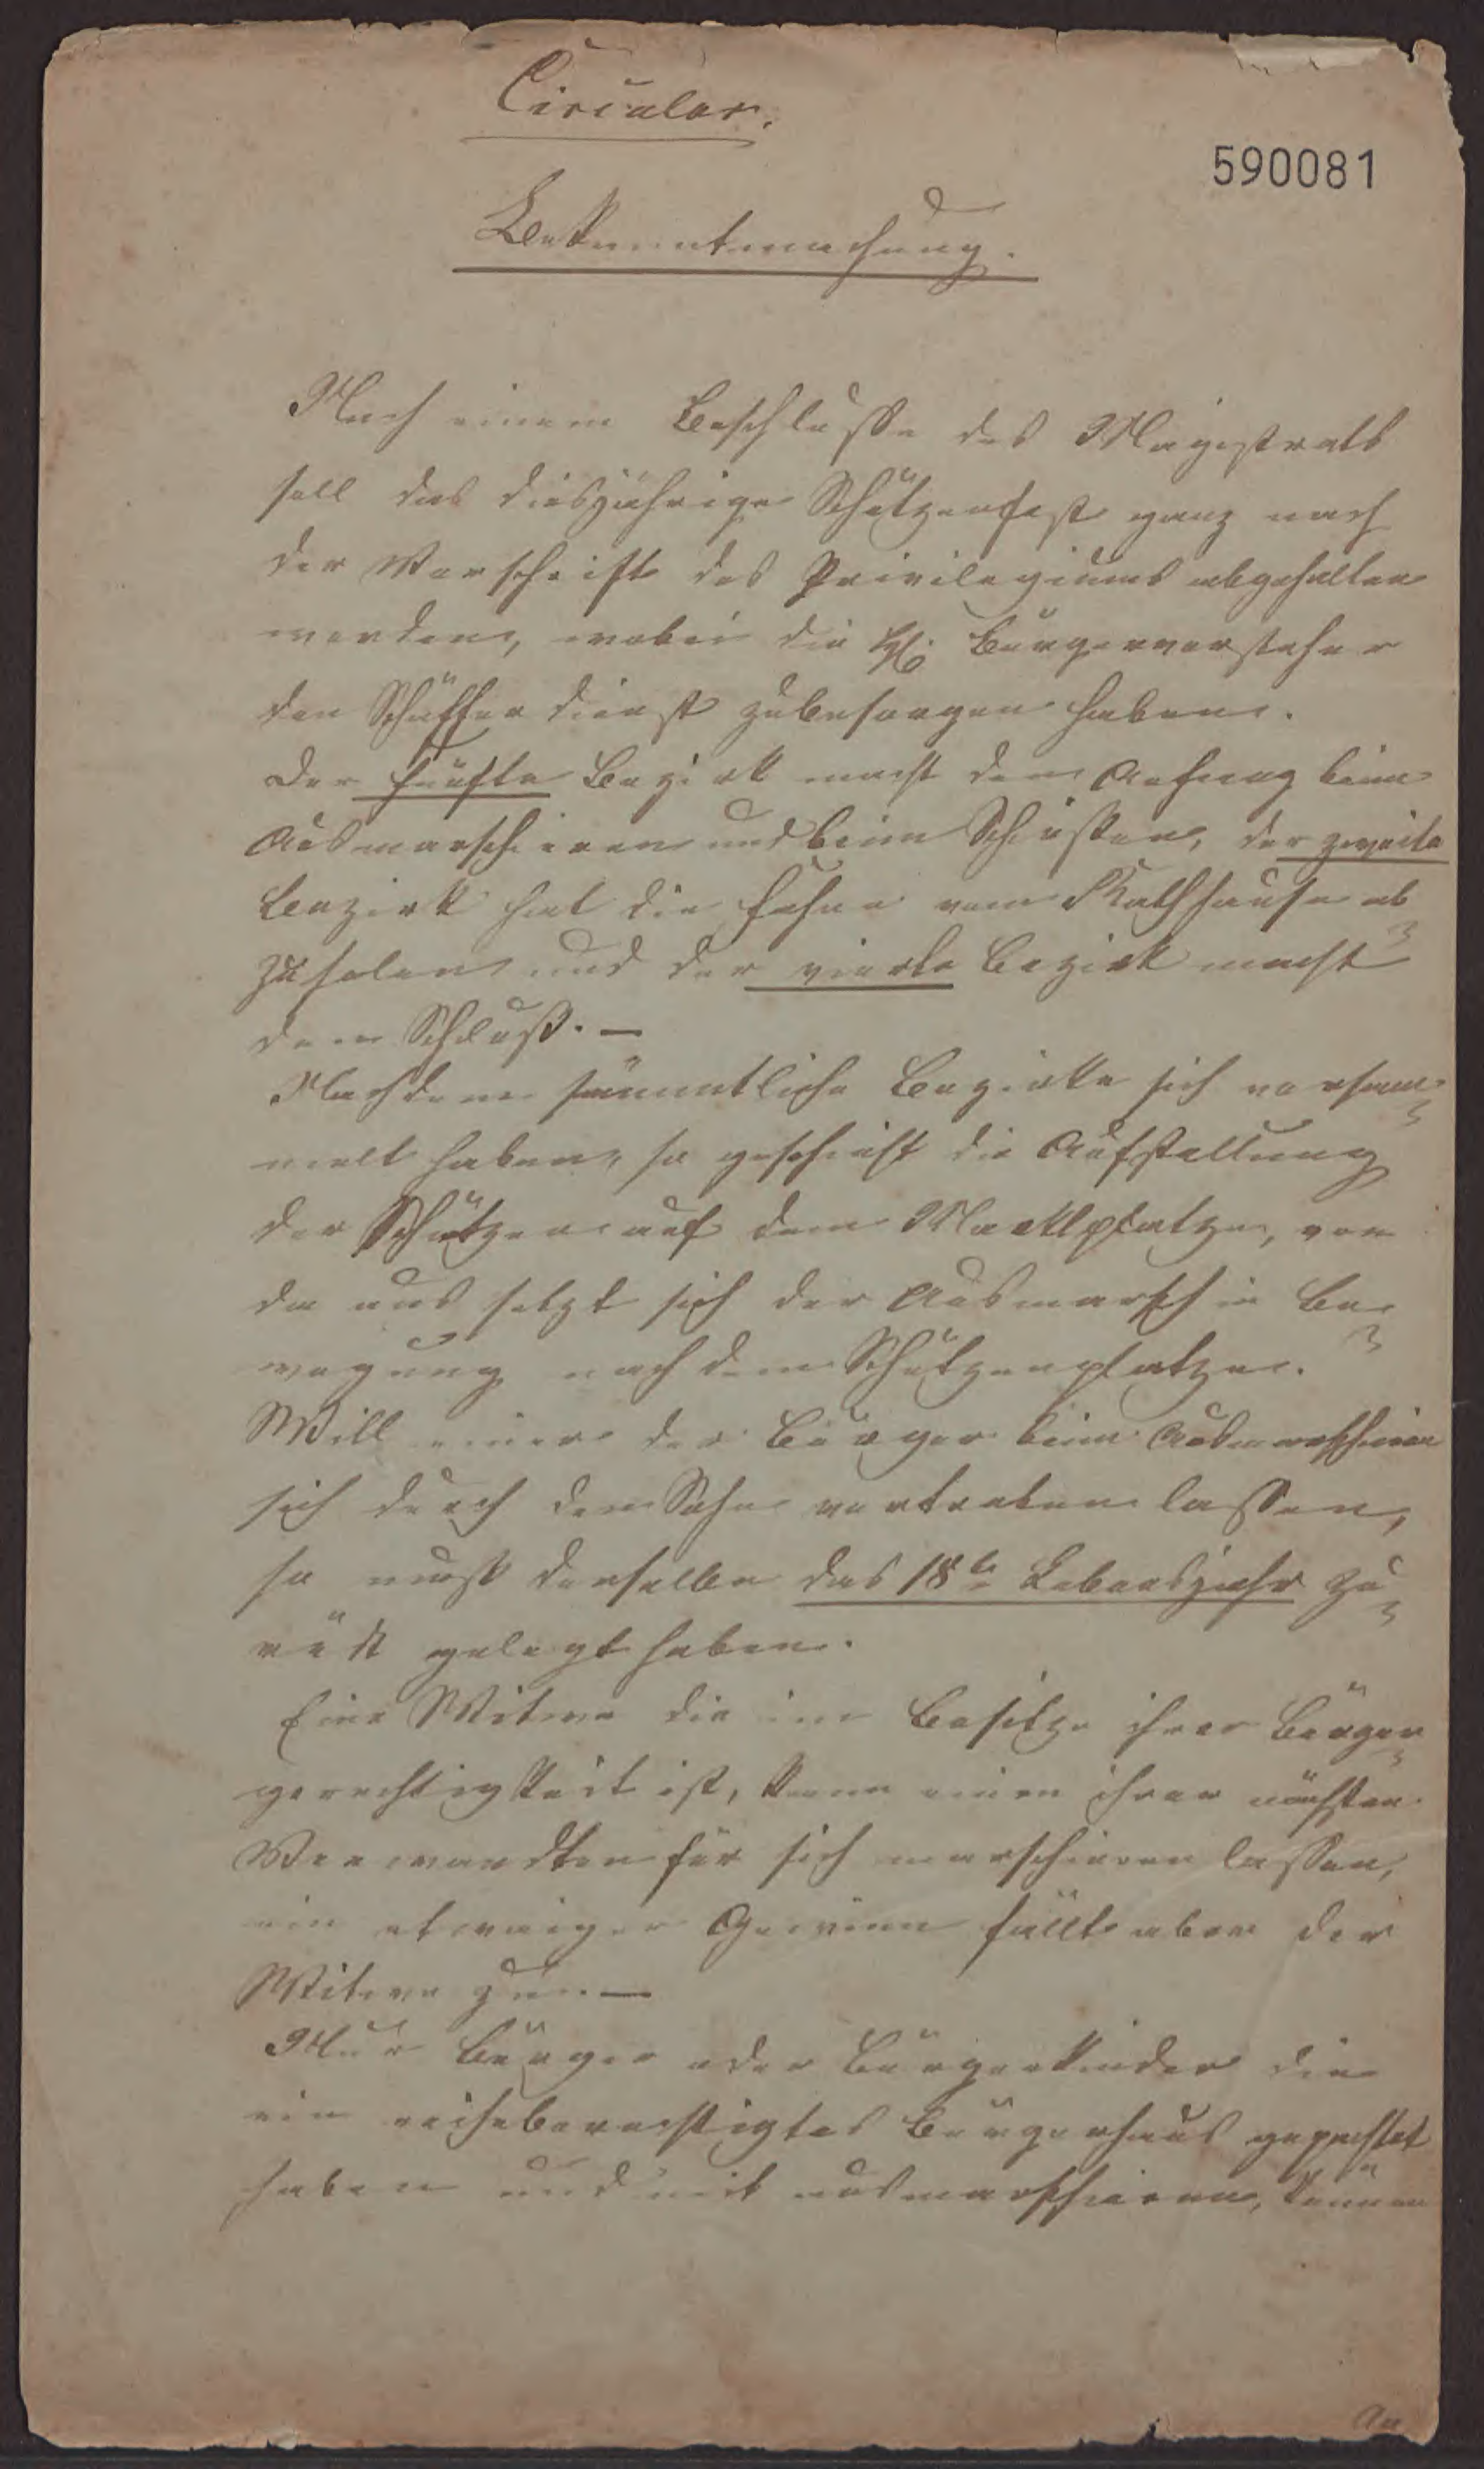 Circular.
590081
Bekanntmachung.
Nach einem Beschlusse des Magistrats
soll das diesjährige Schützenfest ganz nach
der Vorschrift des Privilegiums abgehalten
werden, wobei die HH. Bürgervorsteher
den Schafferdienst zubesorgen haben.
Der fünfte Bezirk macht den Anfang beim
Ausmarschieren und beim Schießen, der zweite
Bezirk hat die Fahne vom Rathhause ab
zuholen und der vierte Bezirk macht
den Schluß. —
Nachdem sämmtliche Bezirke sich versam-
melt haben, so geschieht die Aufstellung
der Schützen auf dem Marktplatze, von
da aus setzt sich der Ausmarsch in Be-
wegung nach dem Schützenplatze.
Will einer der Bürger beim Ausmarschieren
sich durch den Sohn vertreten lassen,
so muß derselbe das 18te Lebensjahr zu-
rück gelegt haben.
Eine Witwe die im Besitze ihrer Bürger-
gerechtigkeit ist, kann einen ihrer nächsten
Verwandten für sich marschieren lassen,
ein etwaiger Gewinn fällt aber der
Witwe zu. —
Nur Bürger oder Bürgerkinder die
ein reiheberechtigtes Bürgerhaus gepachtet
haben und mit ausmarschieren, können
An